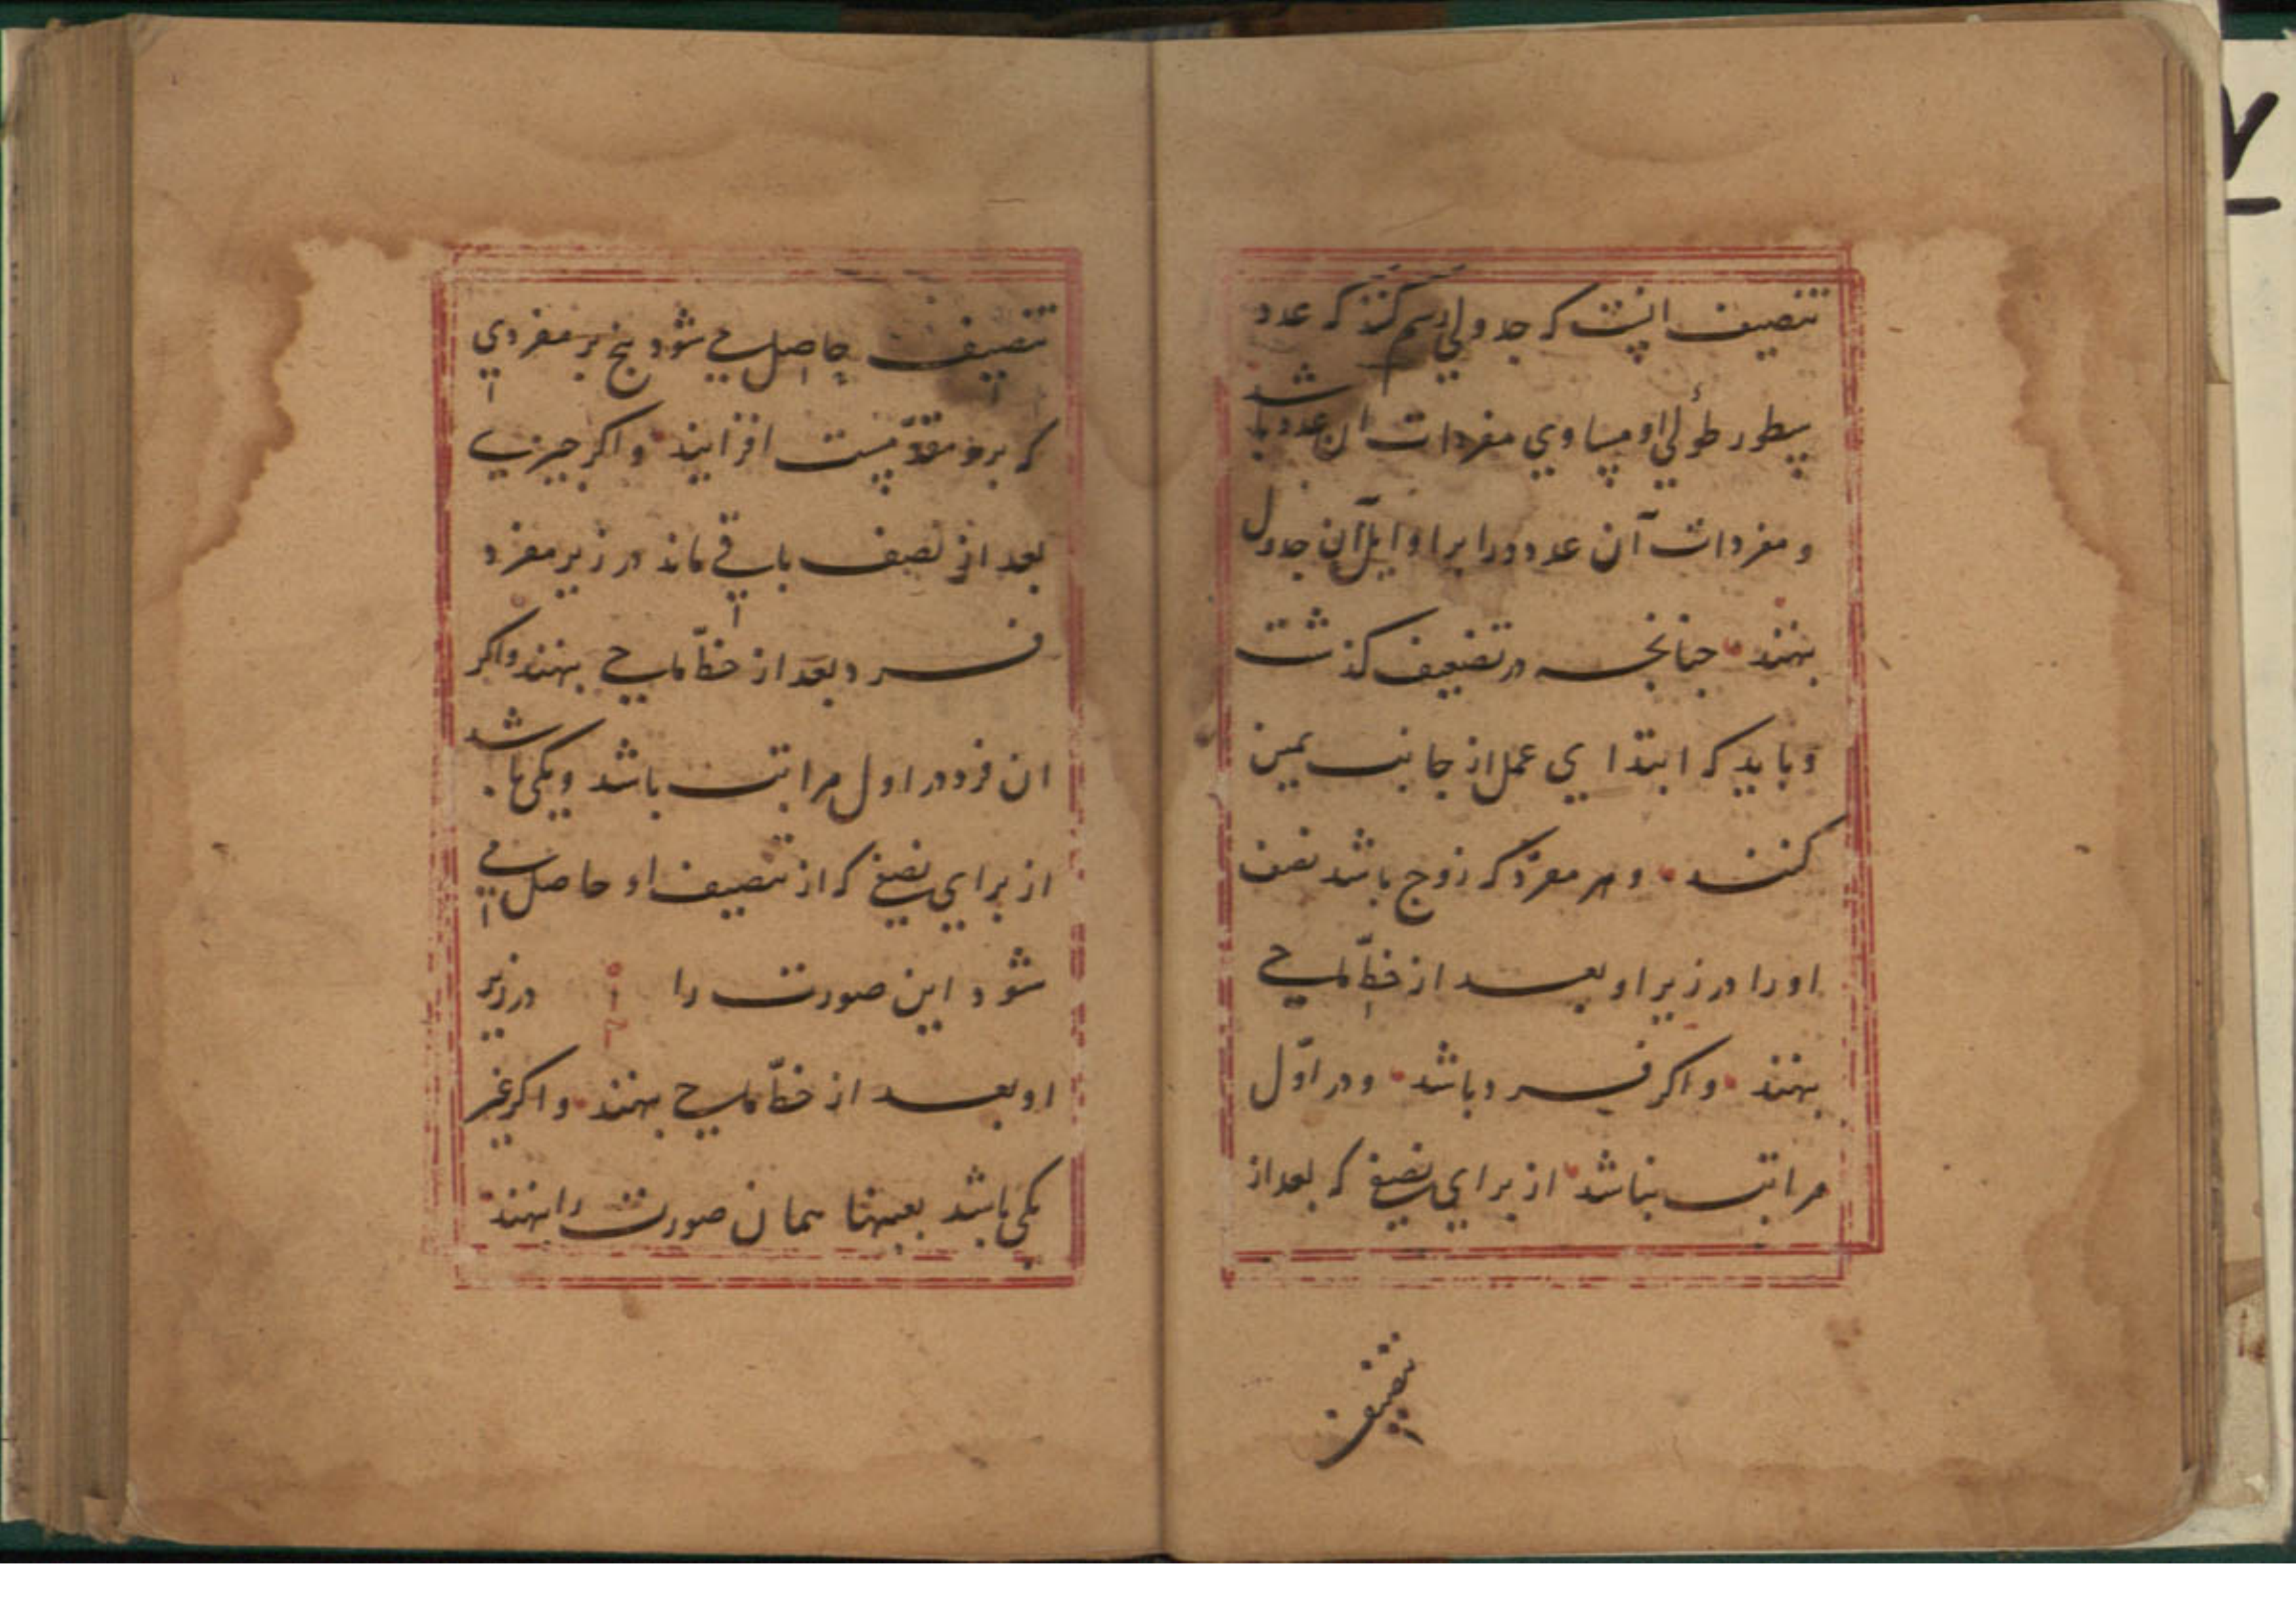 تنصیف انست که جدولی رسم کنند که عدد
سطور طولی او مساوی مفردات ان عدد باشد
و مفردات آن عدد را بر اوایل آن جدول
بنهند چنانچه در تضعیف گذشت
و باید که ابتدای عمل از جانب یمین
کنند و هر مفرد که زوج باشد نصف
او را در زیر او بعد از خط ماحی
بنهند و اکر فرد باشد و در اوّل
مراتب نباشد از برای نصفی که بعد از
تنصیف
تنصیف حاصل می شود پنج بر مفردی
که برو مقدّمست افزایند و اکر چیزی
بعد از تنصیف باقی ماند در زیر مفرد
فرد و بعد از خط ماحی بنهند و اکر
ان فرد در اول مراتب باشد و یکی باشد
از برای نصفی که از تنصیف او حاصل می
شود این صورت را در زیر
او بعد از خط ماحی بنهند و اکر غیر
یکی باشد بعینها همان صورت را بنهند